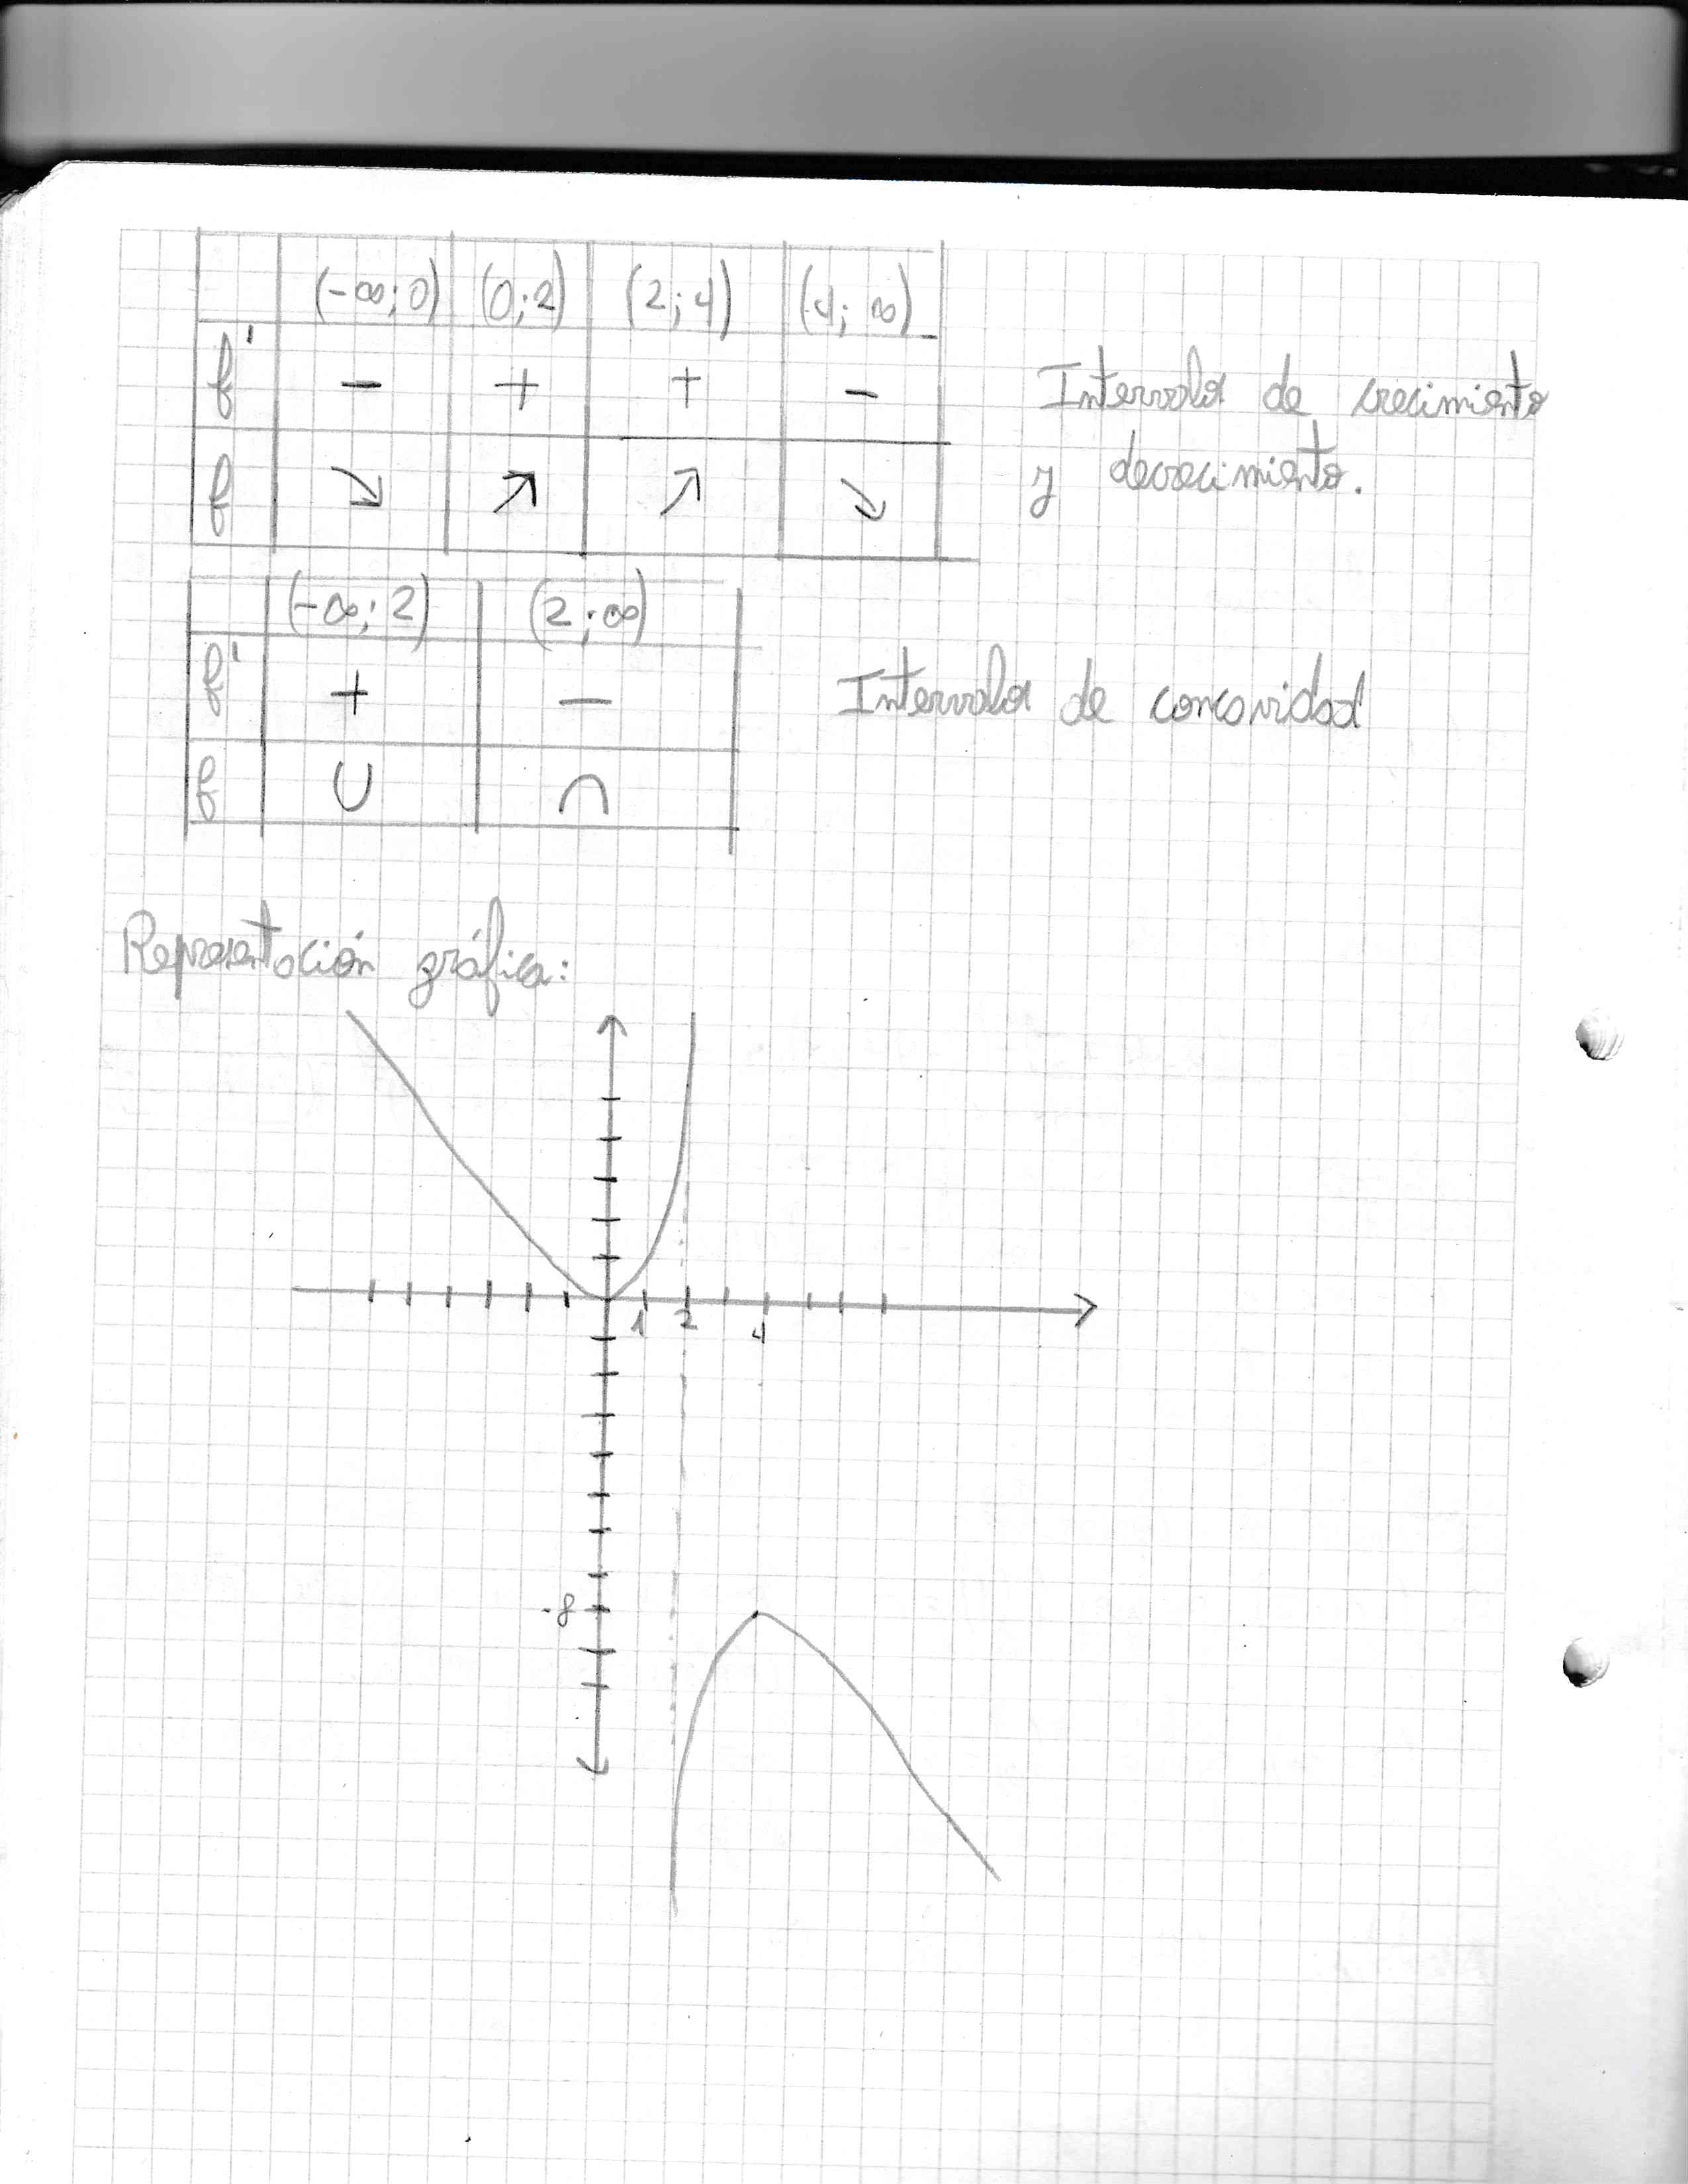 (-∞; 0) (0; 2) (2; 4) (4; ∞)
f' - + + -
f ↘ ↗ ↗ ↘
Intervalos de crecimiento
y decrecimiento.
(-∞; 2) (2; ∞)
f' + -
f ∪ ∩
Intervalos de concavidad
Representación gráfica:
1 2 4
-8